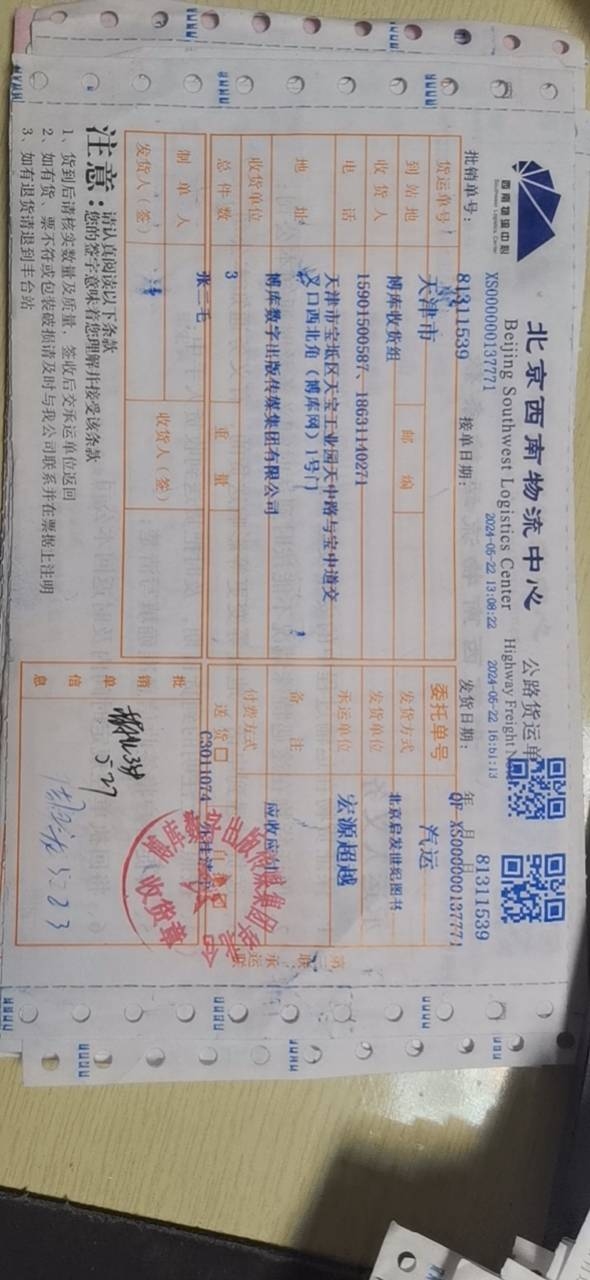 西南物流中心
Southwest Logistics Center
北京西南物流中心
公路货运单
Beijing Southwest Logistics Center
Highway Freight
XS000000137771
2024-05-22 13:08:22
2024-05-22 16:51:13
批销单号：
接单日期：
发货日期：
年 月 日
81311539
货运单号
81311539
委托单号
QF-XS000000137771
到站地
天津市
邮编
发货方式
汽运
收货人
博库收货组
发货单位
北京启发世纪图书
电话
15901500587、18631140271
承运单位
宏源超越
地址
天津市宝坻区天宝工业园天中路与宝中道交
叉口西北角（博库网）1号门
备注
收货单位
博库数字出版传媒集团有限公司
付费方式
应收应付
总件数
3
重量
送货
C3011074
制单人
张二毛
发货人（签）
收货人（签）
批销单信息
5.27
5.23
收货章
第二联 承运联
注意：
请认真阅读以下条款
您的签字意味着您理解并接受该条款
1、货到后请核实数量及质量，签收后交承运单位返回
2、如有货、票不符或包装破损请及时与我公司联系并在票据上注明
3、如有退货请退到丰台站